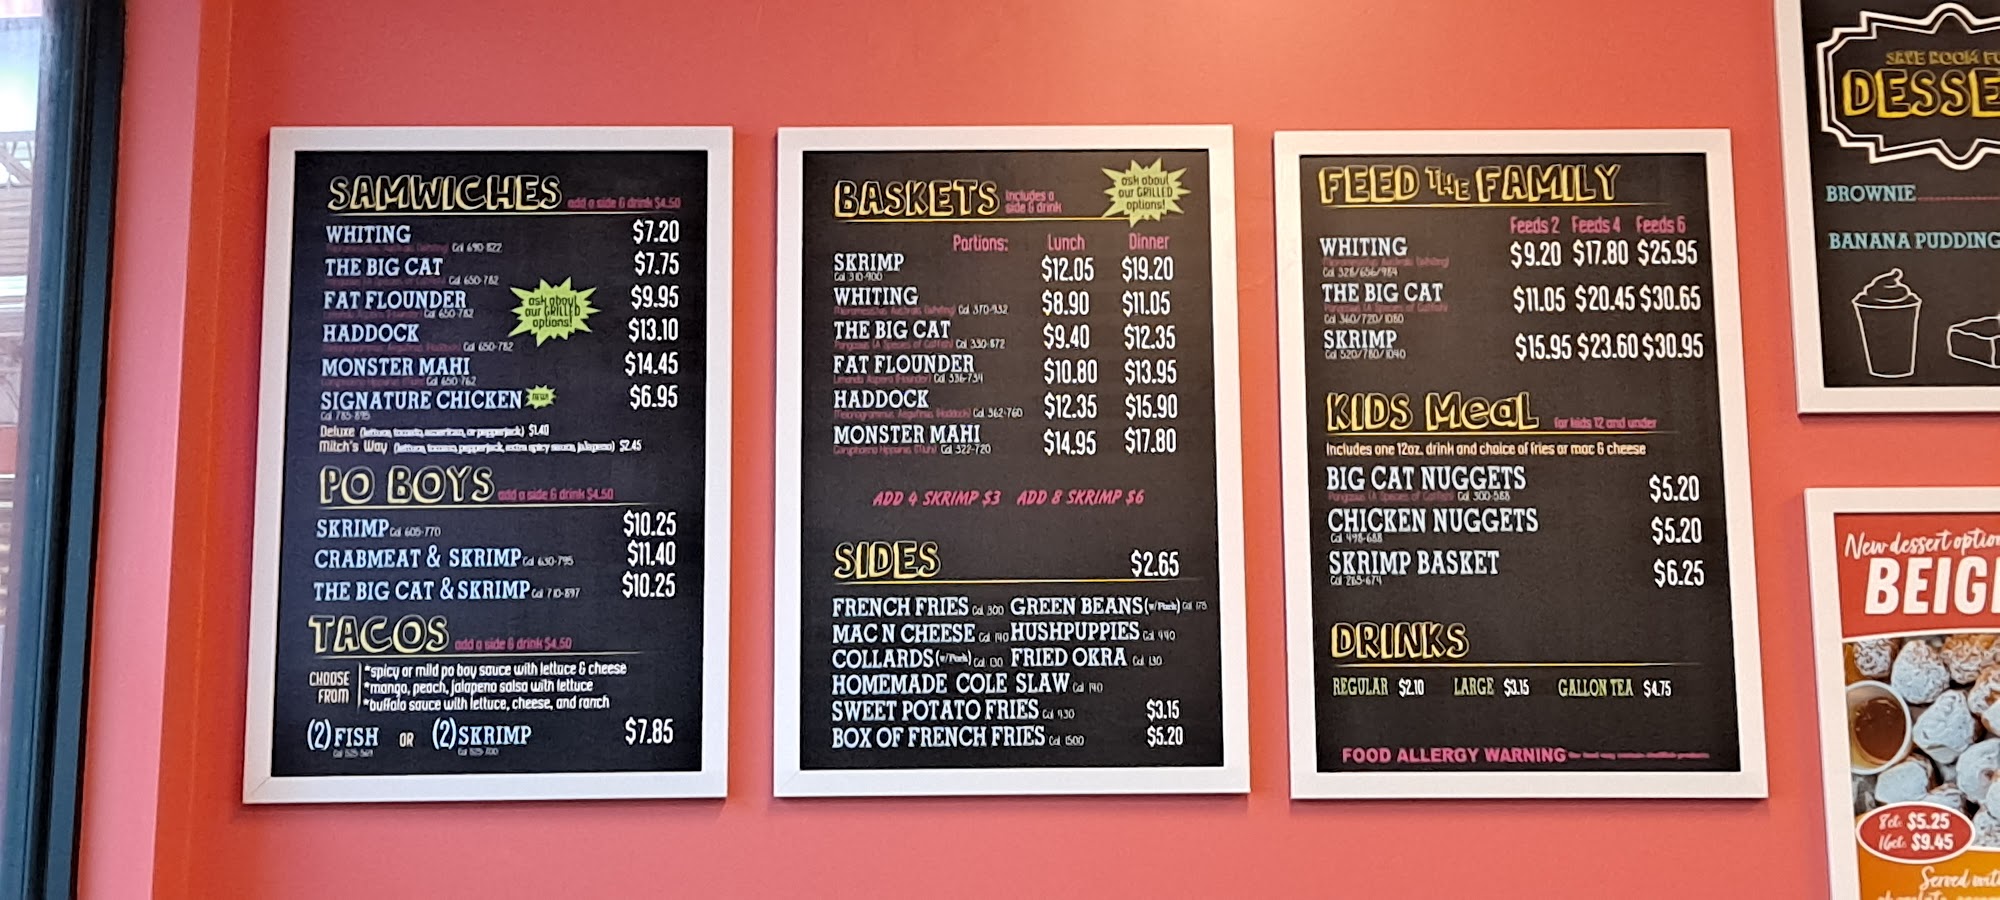 SAMWICHES add a side & drink $4.50
WHITING $7.20
Cal 690-822
THE BIG CAT $7.75
Cal 650-782
FAT FLOUNDER $9.95
Cal 650-782
HADDOCK $13.10
Cal 650-782
MONSTER MAHI $14.45
Cal 650-762
SIGNATURE CHICKEN NEW! $6.95
Cal 785-895
ask about
our GRILLED
options!
Deluxe (lettuce, tomato, american, or pepperjack) $1.40
Mitch's Way (lettuce, tomato, pepperjack, extra spicy sauce, jalapeno) $2.45
PO BOYS add a side & drink $4.50
SKRIMP Cal 605-770 $10.25
CRABMEAT & SKRIMP Cal 630-795 $11.40
THE BIG CAT & SKRIMP Cal 710-897 $10.25
TACOS add a side & drink $4.50
CHOOSE
FROM
*spicy or mild po boy sauce with lettuce & cheese
*mango, peach, jalapeno salsa with lettuce
*buffalo sauce with lettuce, cheese, and ranch
(2) FISH OR (2) SKRIMP $7.85
BASKETS includes a
side & drink
ask about
our GRILLED
options!
Portions: Lunch Dinner
SKRIMP $12.05 $19.20
Cal 310-900
WHITING $8.90 $11.05
Micromesistius Australis (Whiting) Cal 370-932
THE BIG CAT $9.40 $12.35
Pangasius (A Species of Catfish) Cal 330-872
FAT FLOUNDER $10.80 $13.95
Limanda Aspera (Flounder) Cal 336-734
HADDOCK $12.35 $15.90
Cal 362-760
MONSTER MAHI $14.95 $17.80
Cal 322-720
ADD 4 SKRIMP $3 ADD 8 SKRIMP $6
SIDES $2.65
FRENCH FRIES Cal 300 GREEN BEANS (w/Pork) Cal 175
MAC N CHEESE Cal 190 HUSHPUPPIES Cal 440
COLLARDS (w/Pork) Cal 130 FRIED OKRA Cal 130
HOMEMADE COLE SLAW Cal 140
SWEET POTATO FRIES Cal 430 $3.15
BOX OF FRENCH FRIES Cal 1500 $5.20
FEED THE FAMILY
Feeds 2 Feeds 4 Feeds 6
WHITING $9.20 $17.80 $25.95
Micromesistius Australis (Whiting)
Cal 328/656/984
THE BIG CAT $11.05 $20.45 $30.65
Pangasius (A Species of Catfish)
Cal 360/720/1080
SKRIMP $15.95 $23.60 $30.95
Cal 520/780/1040
KIDS Meal for kids 12 and under
Includes one 12oz. drink and choice of fries or mac & cheese
BIG CAT NUGGETS $5.20
Pangasius (A Species of Catfish) Cal 300-588
CHICKEN NUGGETS $5.20
Cal 498-688
SKRIMP BASKET $6.25
Cal 265-674
DRINKS
REGULAR $2.10 LARGE $3.15 GALLON TEA $4.75
FOOD ALLERGY WARNING
SAVE ROOM FO
DESSE
BROWNIE
BANANA PUDDING
New dessert option
BEIG
8ct. $5.25
16ct. $9.45
Served with